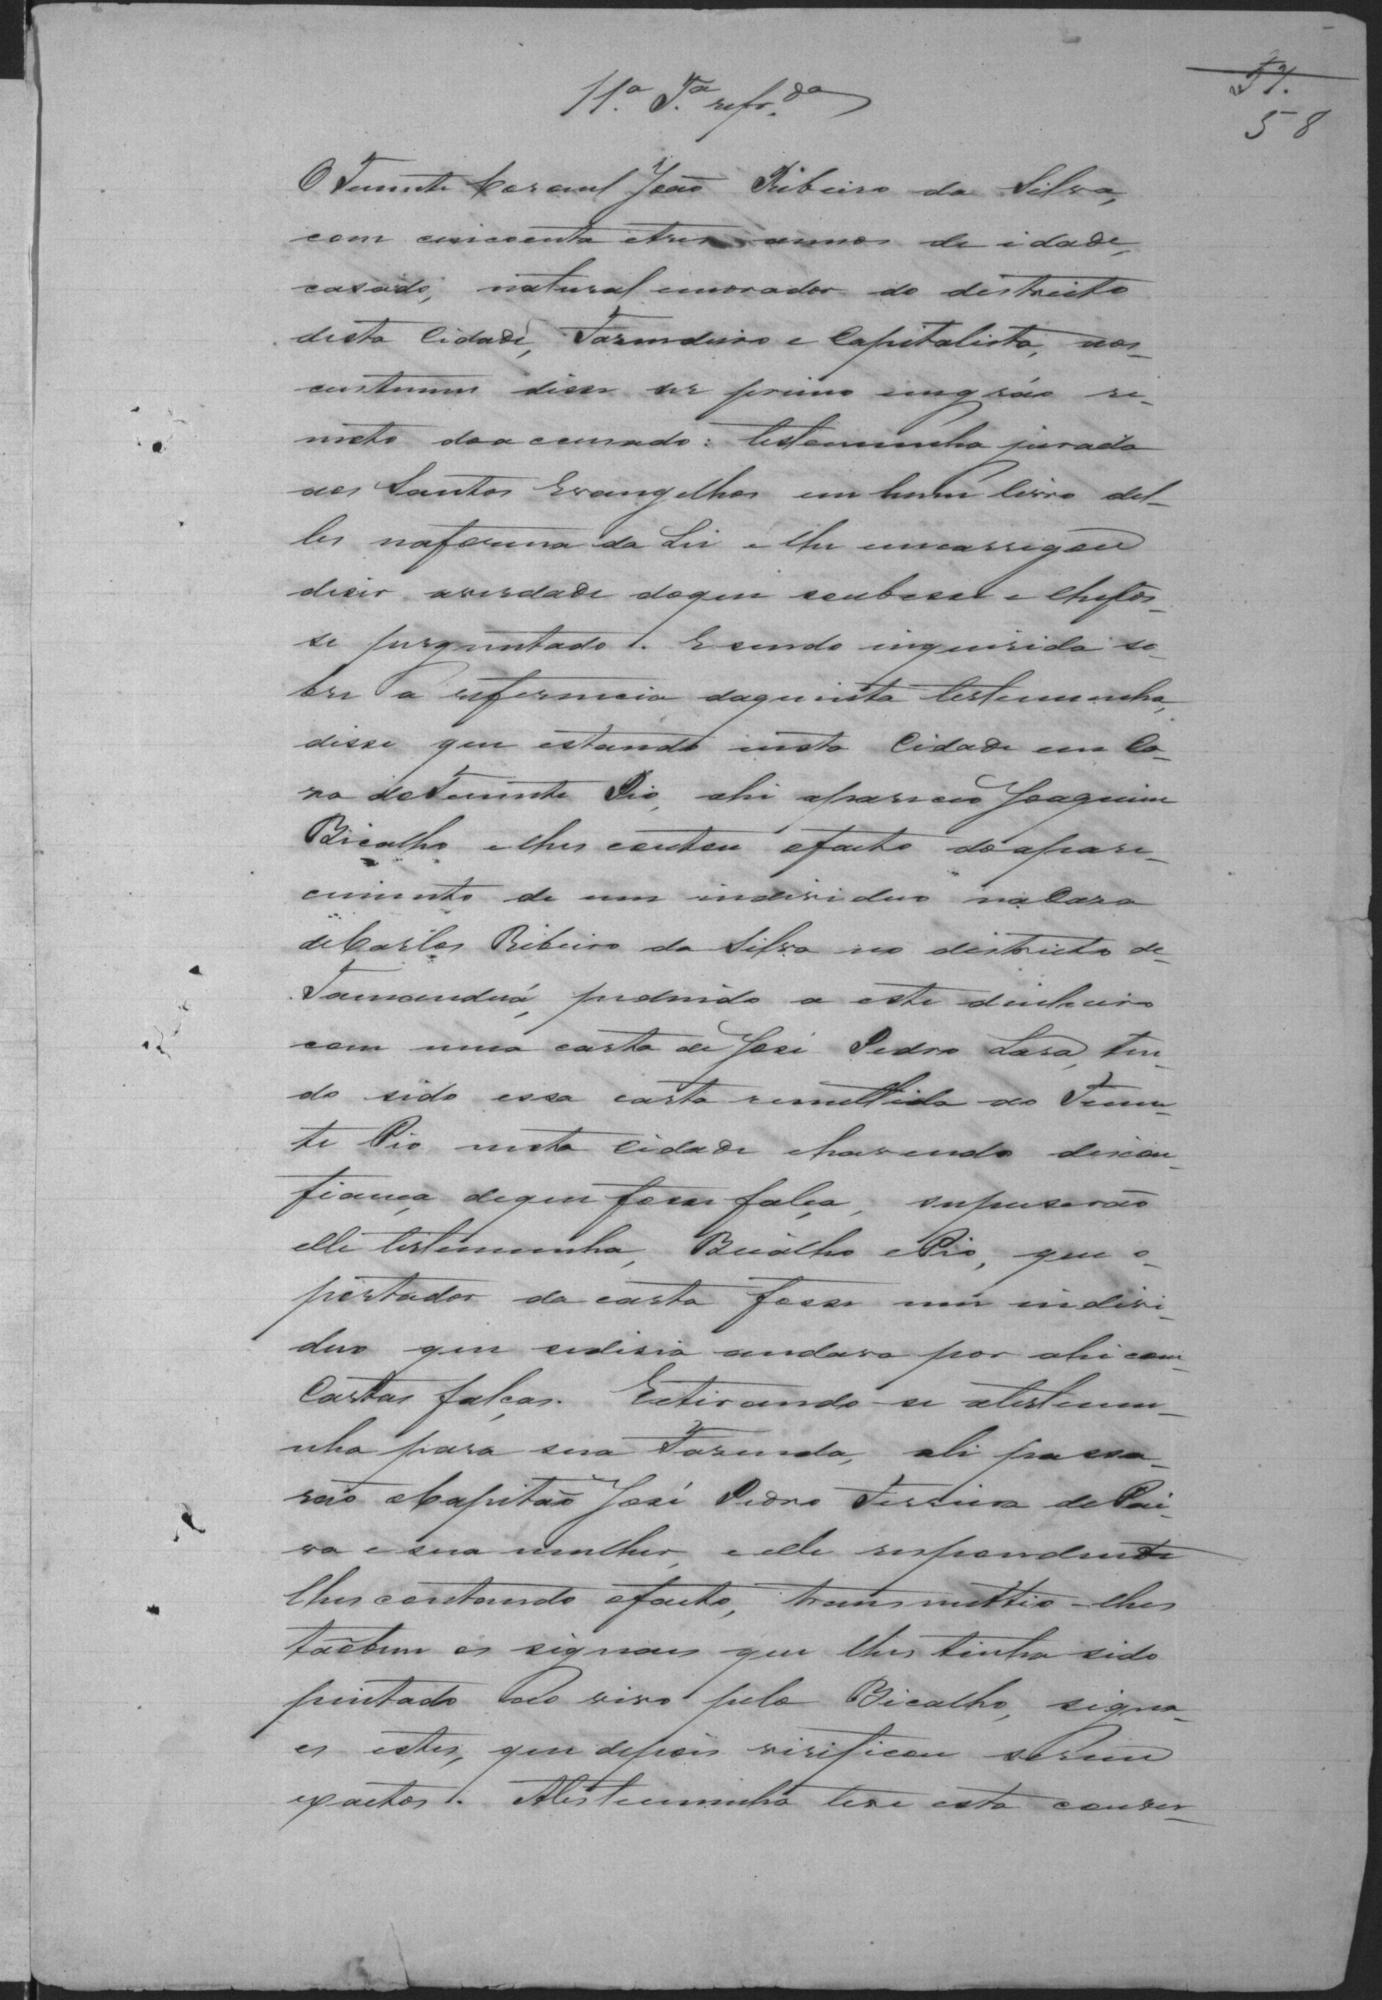 57.
58
11.ª T.ª refr.da
O Tenente Coronel João Ribeiro da Silva,
com cincoenta etres annos de idade,
casado, natural emorador do districto
desta Cidade, Fazendeiro e Capitalista, aos
custumes disse ser primo emgráo re-
moto doaccusado: testemunha jurada
aos Santos Evangelhos em hum livro del-
les naforma da Lei e lhe emcarregou
diser averdade doque soubesse e lhefos-
se perguntado. E sendo inquirida so-
bre a referencia daquinta testemunha,
disse que estando nesta Cidade em Ca-
za doTenente Pio, ahi apareceo Joaquim
Bicalho elhes contou ofacto doapare-
cimento de um individuo naCaza
deCarlos Ribeiro da Silva no districto de
Tamanduá, pedindo a este dinheiro
com uma carta de José Pedro Lara, ten-
do sido essa carta remettida ao Tenen-
te Pio nesta Cidade ehavendo descon-
fiança dequefosse falça, supuserão
elle testemunha, Bicalho ePio, que o
portador da carta fosse um indivi-
duo que sedisia andava por ahi com
Cartas falças. Retirando-se atestemu-
nha para sua Fazenda, ali passa-
rão oCapitão José Pedro Ferreira dePai-
va e sua mulher, e elle respondente
lhes contando ofacto, transmittio-lhes
taobem os signaes que lhes tinha sido
pintado ao vivo pelo Bicalho, signa-
es estes, que depois virificou serem
exactos. Atestemunha teve esta conver-